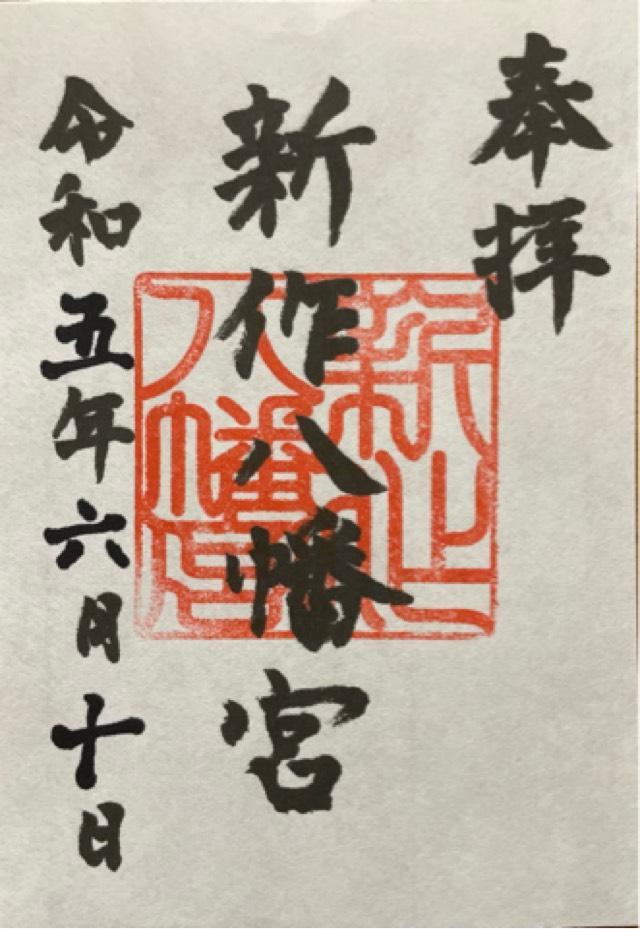 奉拝
新作八幡宮
令和五年六月十日
新作八幡宮